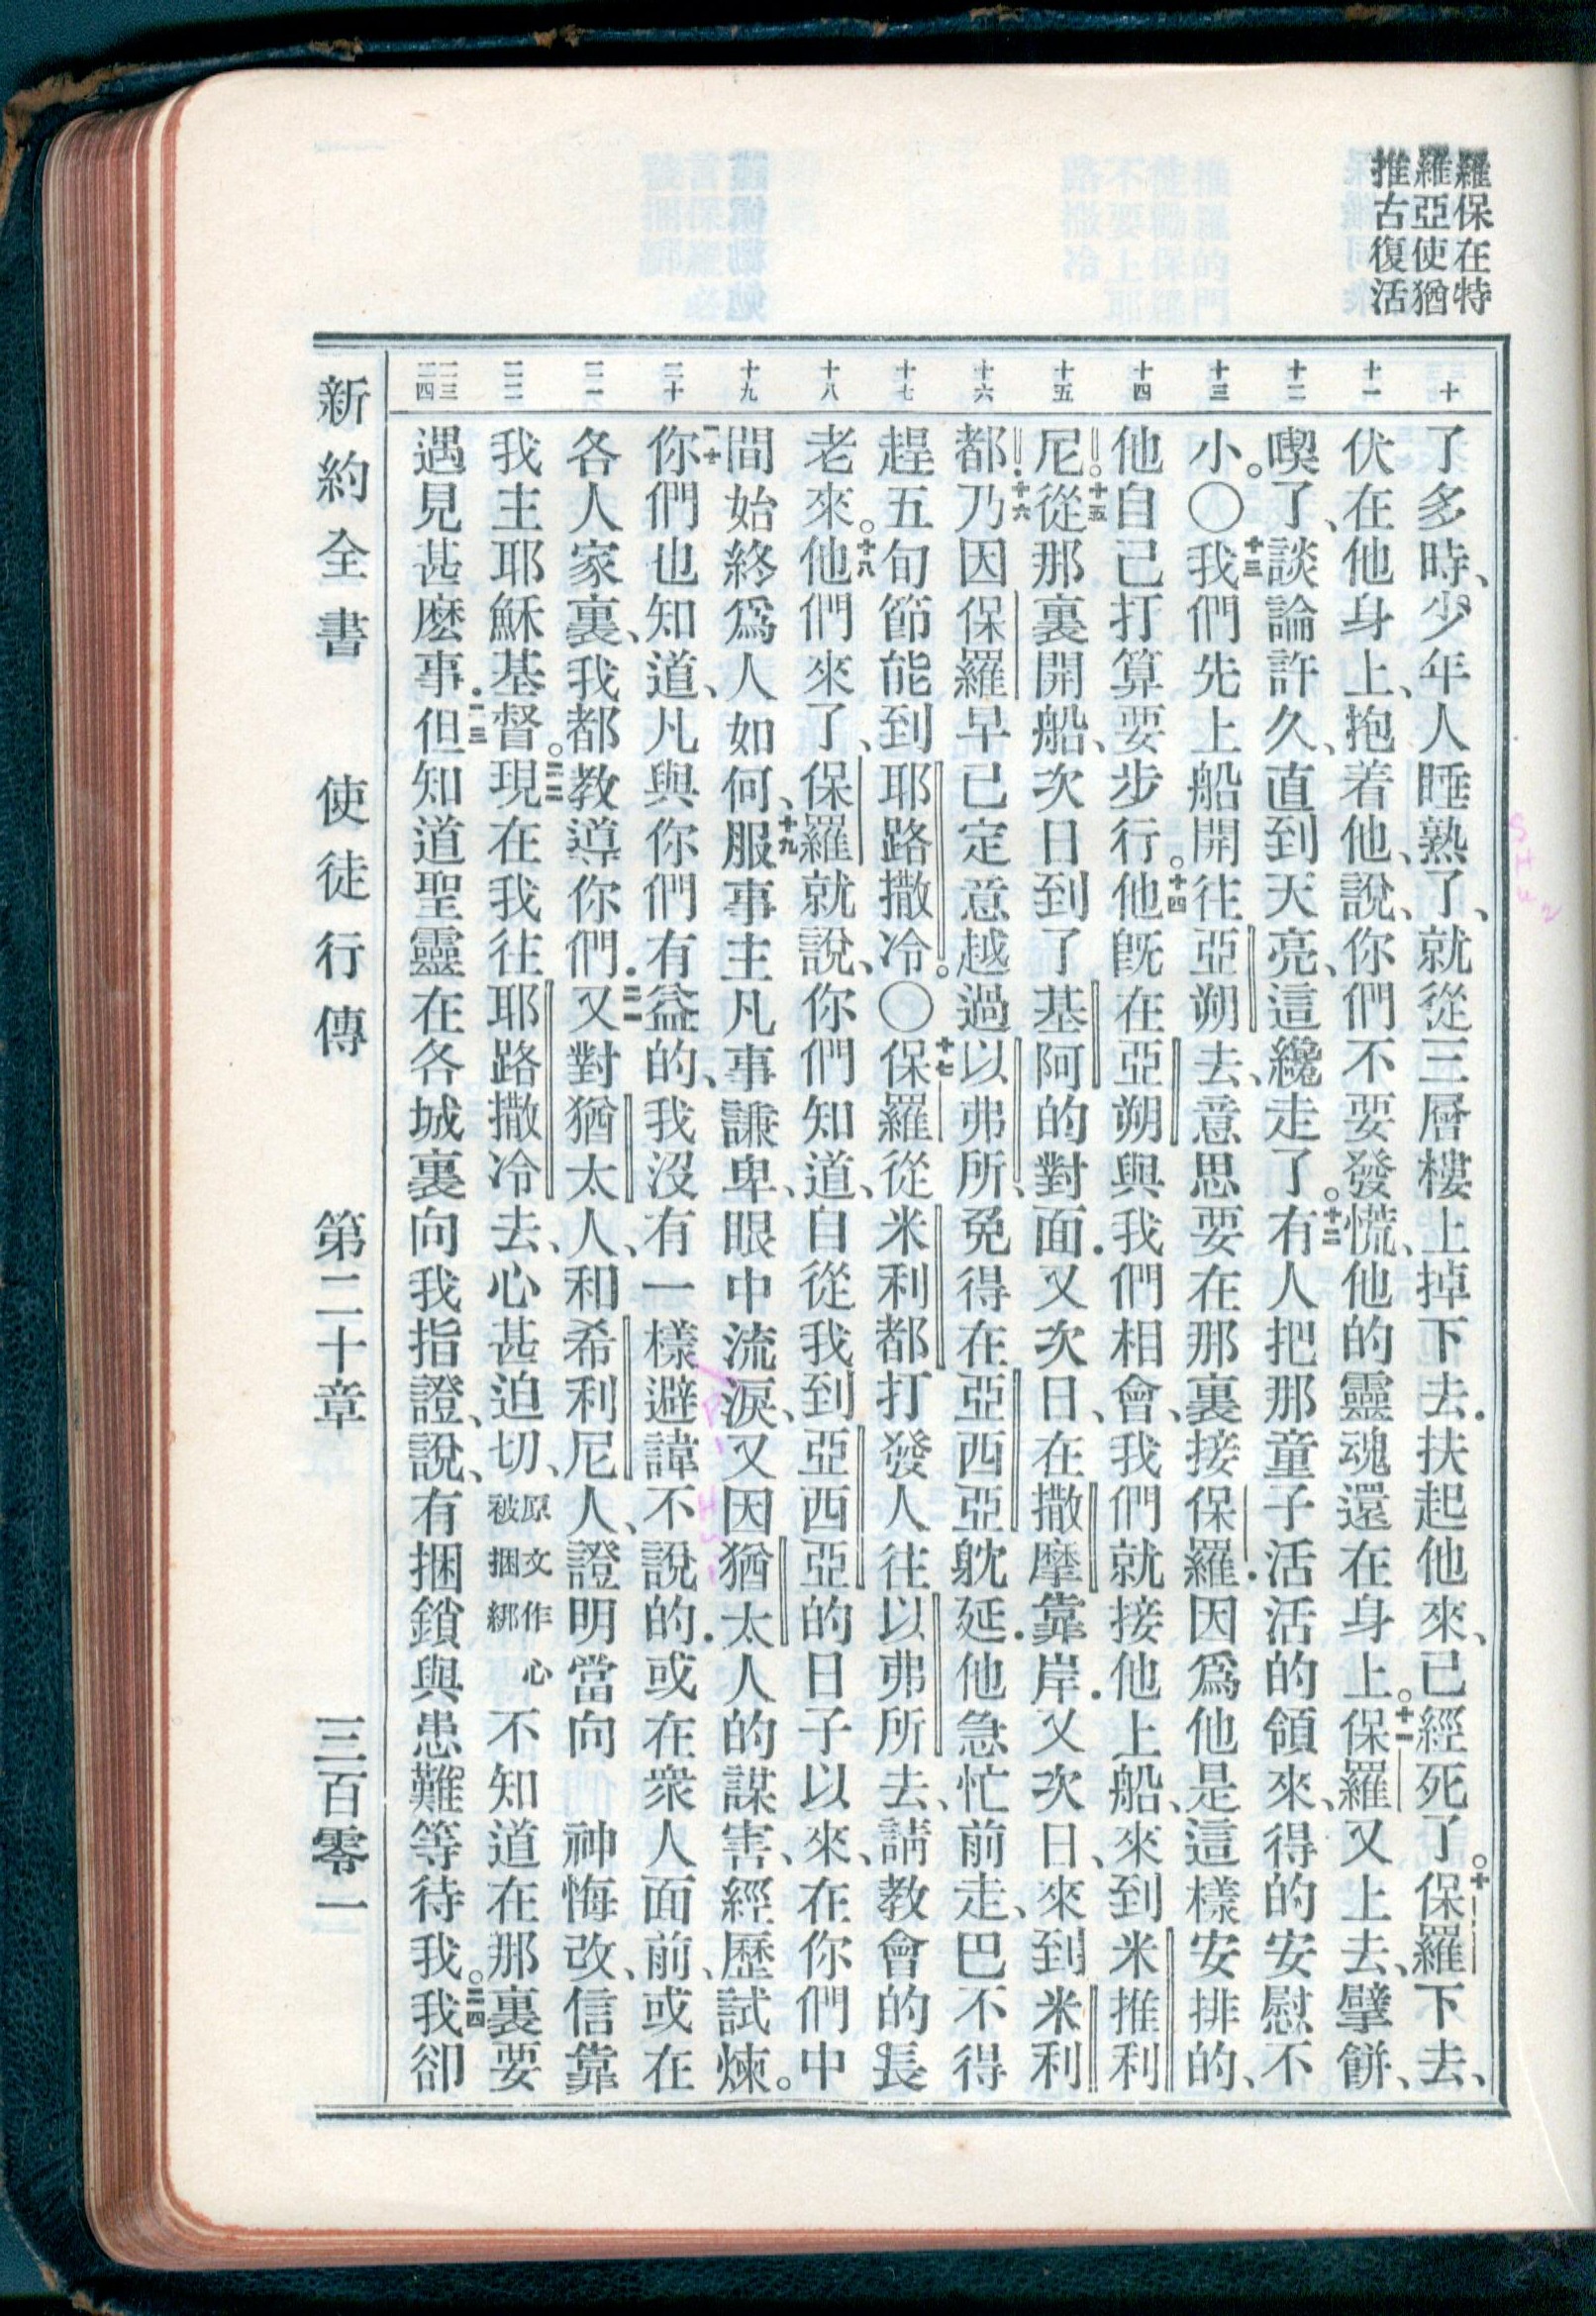 羅保在特
羅亞使猶
推古復活
十
十一
十二
十三
十四
十五
十六
十七
十八
十九
二十
二一
二二
二三
二四
了多時、少年人睡熟了、就從三層樓上掉下去.扶起他來、已經死了。十保羅下去、
伏在他身上、抱着他、說、你們不要發慌、他的靈魂還在身上。十一保羅又上去、擘餅、
喫了、談論許久、直到天亮、這纔走了。十二有人把那童子活活的領來、得的安慰不
小。〇十三我們先上船開往亞朔去、意思要在那裏接保羅.因爲他是這樣安排的、
他自己打算要步行。十四他旣在亞朔與我們相會、我們就接他上船、來到米推利
尼。十五從那裏開船、次日到了基阿的對面.又次日、在撒摩靠岸.又次日、來到米利
都.十六乃因保羅早已定意越過以弗所、免得在亞西亞躭延.他急忙前走、巴不得
趕五旬節能到耶路撒冷。〇十七保羅從米利都打發人往以弗所去、請教會的長
老來。十八他們來了、保羅就說、你們知道、自從我到亞西亞的日子以來、在你們中
間始終爲人如何、十九服事主凡事謙卑、眼中流淚、又因猶太人的謀害、經歷試煉。
二十你們也知道、凡與你們有益的、我沒有一樣避諱不說的.或在衆人面前、或在
各人家裏、我都教導你們.二一又對猶太人、和希利尼人、證明當向 神悔改、信靠
我主耶穌基督。二二現在我往耶路撒冷去、心甚迫切、原文作心被捆綁不知道在那裏要
遇見甚麽事.二三但知道聖靈在各城裏向我指證、說、有捆鎖與患難等待我。二四我卻
新約全書 使徒行傳 第二十章 三百零一